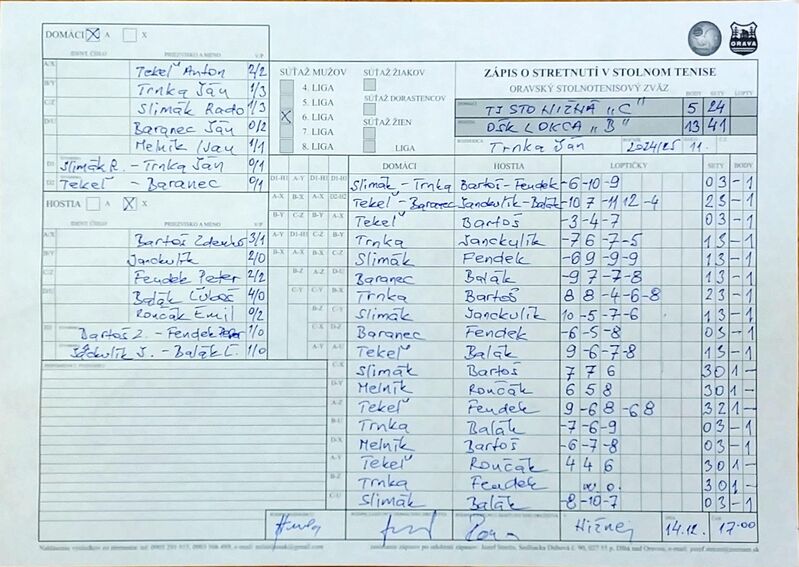 DOMÁCI A X
IDENT. ČÍSLO PRIEZVISKO A MENO V/P
A/X Tekeľ Anton 2/2
B/Y Trnka Ján 1/3
C/Z Slimák Rado 1/3
D/U Baranec Ján 0/2
Melník Ján 1/1
D1 Slimák R. - Trnka Ján 0/1
D2 Tekeľ - Baranec 0/1
HOSTIA A X
IDENT. ČÍSLO PRIEZVISKO A MENO V/P
A/X Bartoš Zdenko 3/1
B/Y Janckulík 2/0
C/Z Fendek Peter 2/2
D/U Balák Ľuboš 4/0
Rončák Emil 0/2
Bartoš Z. - Fendek Peter 1/0
J. - Balák Ľ. 1/0
SÚŤAŽ MUŽOV
4. LIGA
5. LIGA
6. LIGA
7. LIGA
8. LIGA
SÚŤAŽ ŽIAKOV
SÚŤAŽ DORASTENCOV
SÚŤAŽ ŽIEN
LIGA
ORAVA
ZÁPIS O STRETNUTÍ V STOLNOM TENISE
ORAVSKÝ STOLNOTENISOVÝ ZVÄZ
BODY SETY LOPTY
TJ STO NIŽNÁ „C" 5 24
OŠK LOKCA „B" 13 41
Trnka Ján 2024/25 11.
DOMÁCI HOSTIA LOPTIČKY SETY BODY
Slimák - Trnka Bartoš - Fendek -6 -10 -9 0 3 - 1
Tekeľ - Baranec Janckulík - Balák -10 7 -11 12 -4 2 3 - 1
Tekeľ Bartoš -3 -4 -7 0 3 - 1
Trnka Janckulík -7 6 -7 -5 1 3 - 1
Slimák Fendek -6 9 -9 -9 1 3 - 1
Baranec Balák -9 7 -7 -8 1 3 - 1
Trnka Bartoš 8 8 -4 -6 -8 2 3 - 1
Slimák Janckulík 10 -5 -7 -6 1 3 - 1
Baranec Fendek -6 -5 -8 0 3 - 1
Tekeľ Balák 9 -6 -7 -8 1 3 - 1
Slimák Bartoš 7 7 6 3 0 1 -
Melník Rončák 6 5 8 3 0 1 -
Tekeľ Fendek 9 -6 8 -6 8 3 2 1 -
Trnka Balák -7 -6 -9 0 3 - 1
Melník Bartoš -6 -7 -8 0 3 - 1
Tekeľ Rončák 4 4 6 3 0 1 -
Trnka Fendek w. o. 3 0 1 -
Slimák Balák -8 -10 -7 0 3 - 1
14.12. 17:00